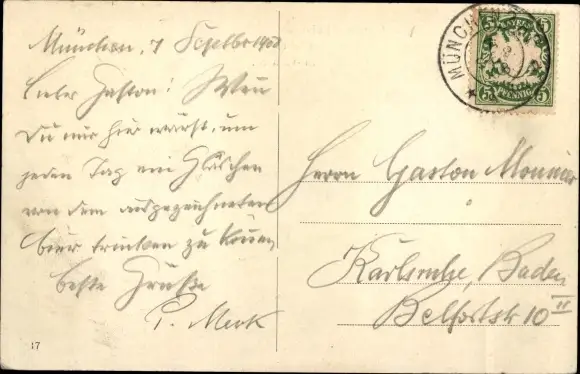 München, 7 Septbr 1908
Lieber Gaston! Wenn
Du nur hier wärst, um
jeden Tag ein Gläschen
von dem ausgezeichneten
bier trinken zu können,
beste Grüße
P. Merk
17
MÜNCHEN
5 BAYERN 5
5 PFENNIG 5
Herrn Gaston Monnier
Karlsruhe, Baden,
Belfortstr 10 II